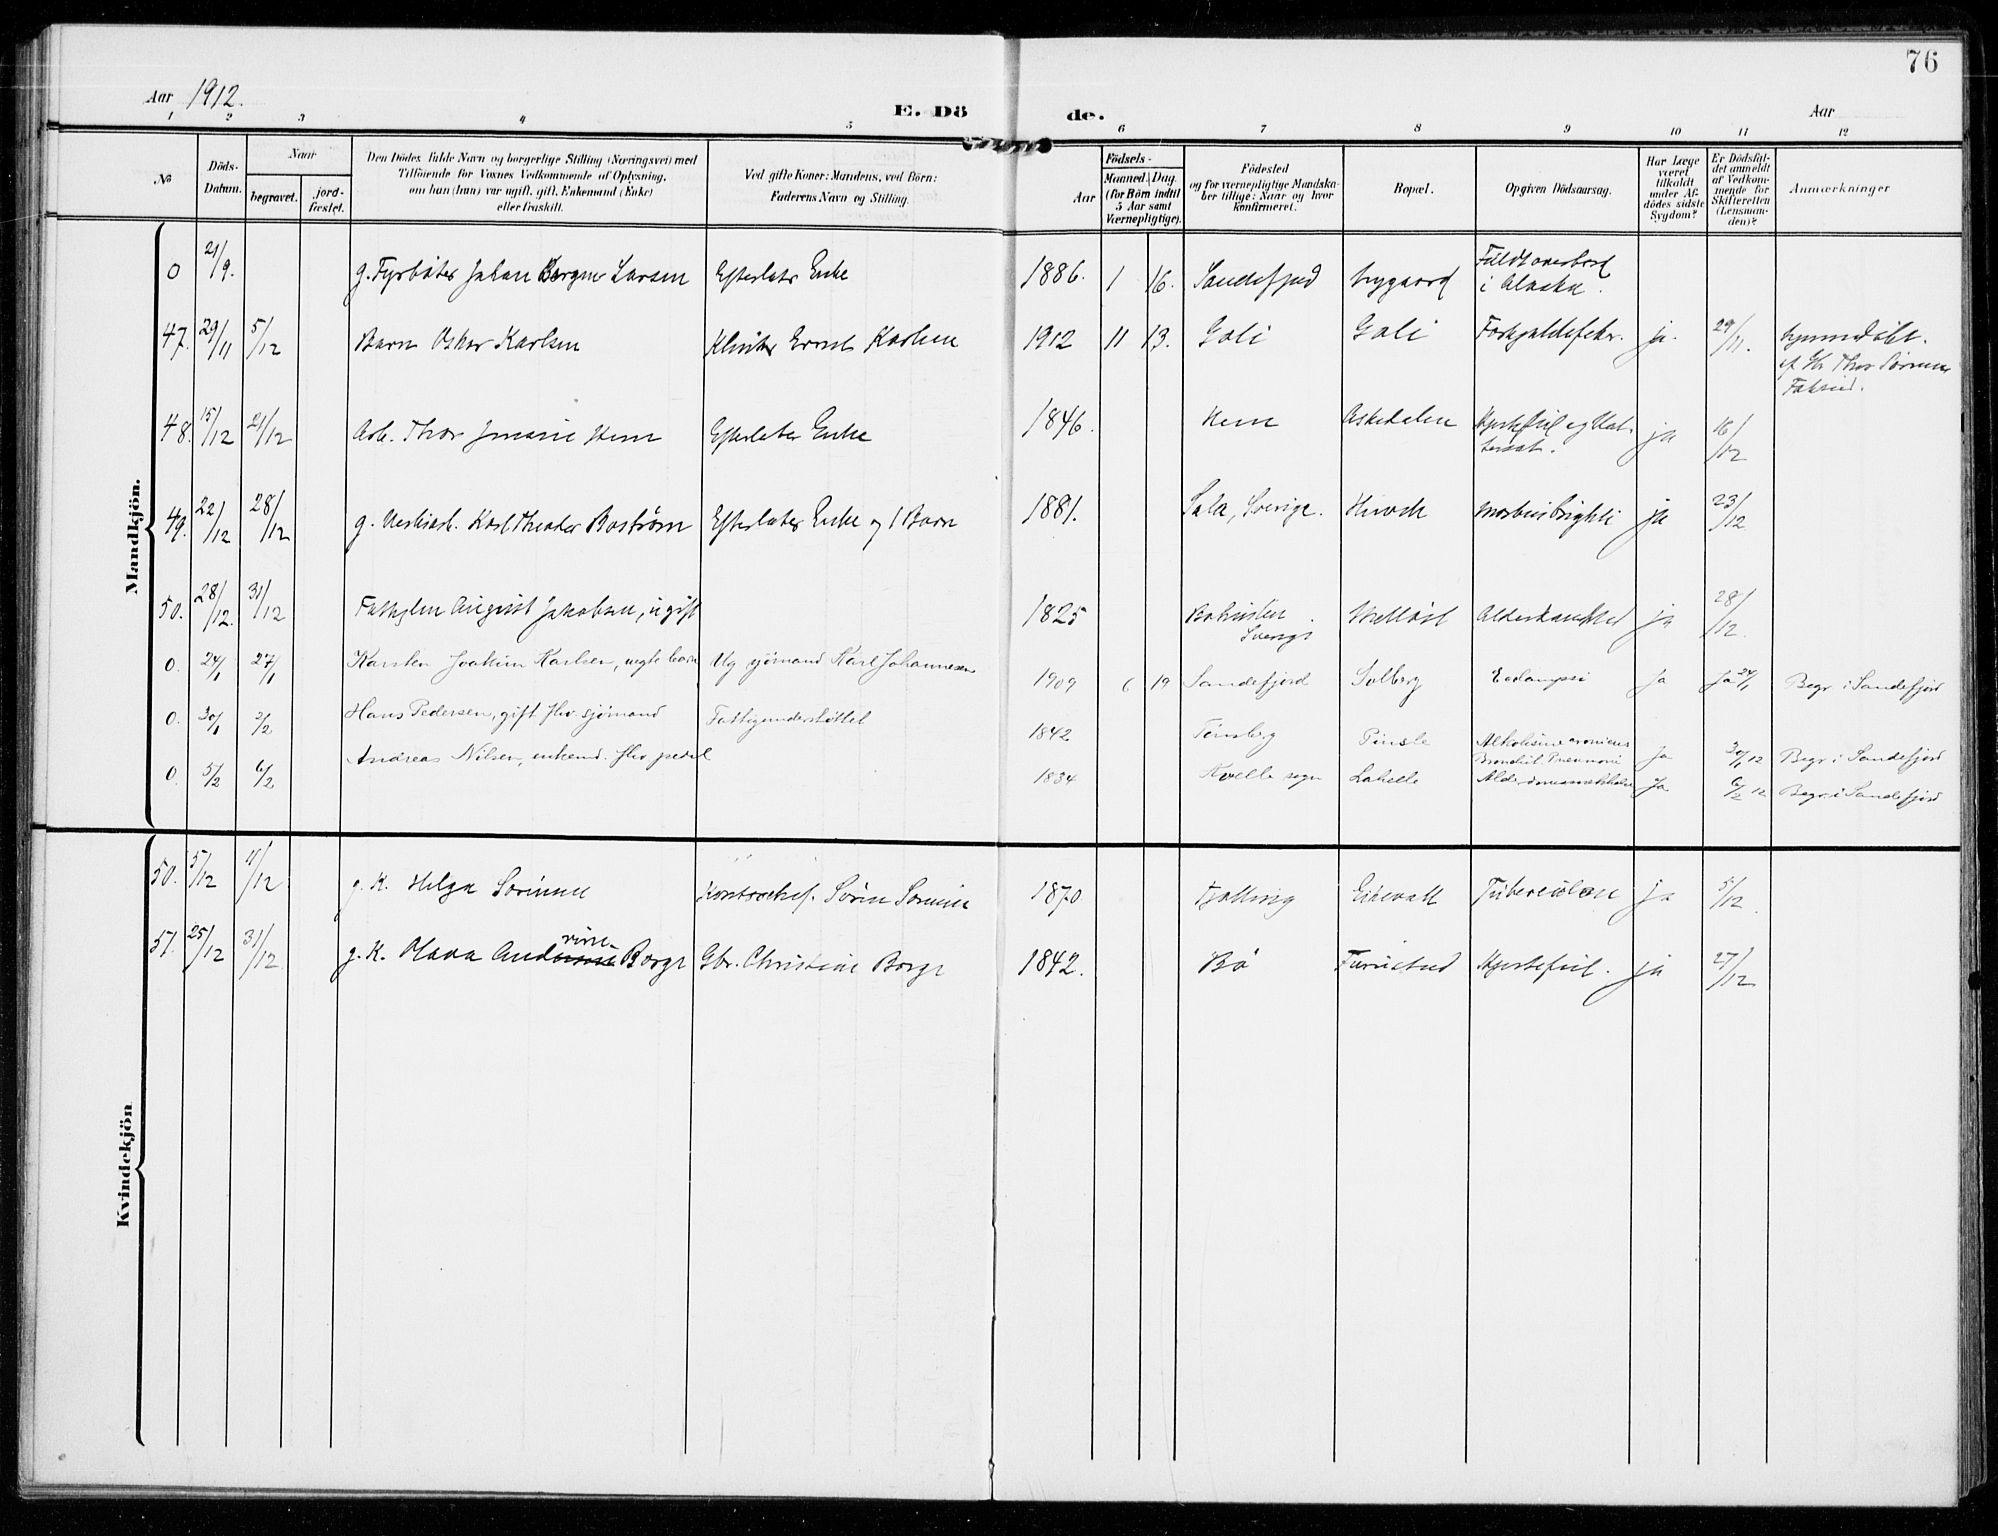 76
Aar 1912.
E. Dö
de.
Aar
1 2 3 4 5 6 7 8 9 10 11 12
No
Döds-
Datum.
Naar
begravet.
jord-
fæstet.
Den Dödes fulde Navn og borgerlige Stilling (Næringsvei) med
Tilföiende for Voxnes Vedkommende af Oplysning,
om han (hun) var ugift, gift, Enkemand (Enke)
eller fraskilt.
Ved gifte Koner: Mandens, ved Börn:
Faderens Navn og Stilling.
Födsels-
Aar
Maaned. Dag.
(for Börn indtil
5 Aar samt
Værnepligtige).
Födested
og for værnepligtige Mandska-
ber tillige: Naar og hvor
konfirmeret.
Bopæl.
Opgiven Dödsaarsag.
Har Læge
været
tilkaldt
under Af-
dödes sidste
Sygdom?
Er Dödsfal-
det anmeldt
af Vedkom-
mende for
Skifteretten
(Lensman-
den)?
Anmærkninger
Mandkjön.
0 21/9. g. Fyrböter Johan Larsen Efterlater Enke 1886. 1 16. Sandefjord Nygaard Faldt overbord
i Alaska.
47. 29/11 5/12 Barn Oskar Karlsen Ernst Karlsen 1912 11 13. Goli Goli ja. 29/11. Hjemmedöbt.
af Thor
48. 15/12 21/12 Arb. Thor Hem Efterlater Enke 1846. Hem Askedalen Hjertefeil og Vat-
tersot. ja 16/12
49. 22/12 28/12 g. Karl Theodor Boström Efterlater Enke og 1 Barn 1881. Sala, Sverige. morbus brighti ja 23/12
50. 28/12. 31/12 August Jakobsen, ugift 1825 Bohuslen
Sverige ja 28/12.
0. 24/1 27/1 Karsten Joakim Karlsen, uegte barn Ug sjömand Karl Johannesen 1909 6 19 Sandefjord Solberg Eclampsi Ja Ja 24/1 Begr. i Sandefjord
0. 30/1 2/2 Hans Pedersen, gift fhv. sjömand Fattigunderstöttet 1842 Tönsberg Ja 30/1 12 Begr. i Sandefjord
0. 5/2 6/2 Andreas Nilsen, enkemd. fhv. pedel 1834 Kvelle sogn Ja 6/2 12 Begr. i Sandefjord
Kvindekjön
50. 5/12 11/12 g. K. Helga Sörensen Sören Sörensen 1870 Tjölling Tuberculose ja 5/12.
51. 25/12 31/12 g. K. Olava And rine. Borge Gbr. Christian Borge 1842. Bö Hjertefeil. ja 27/12